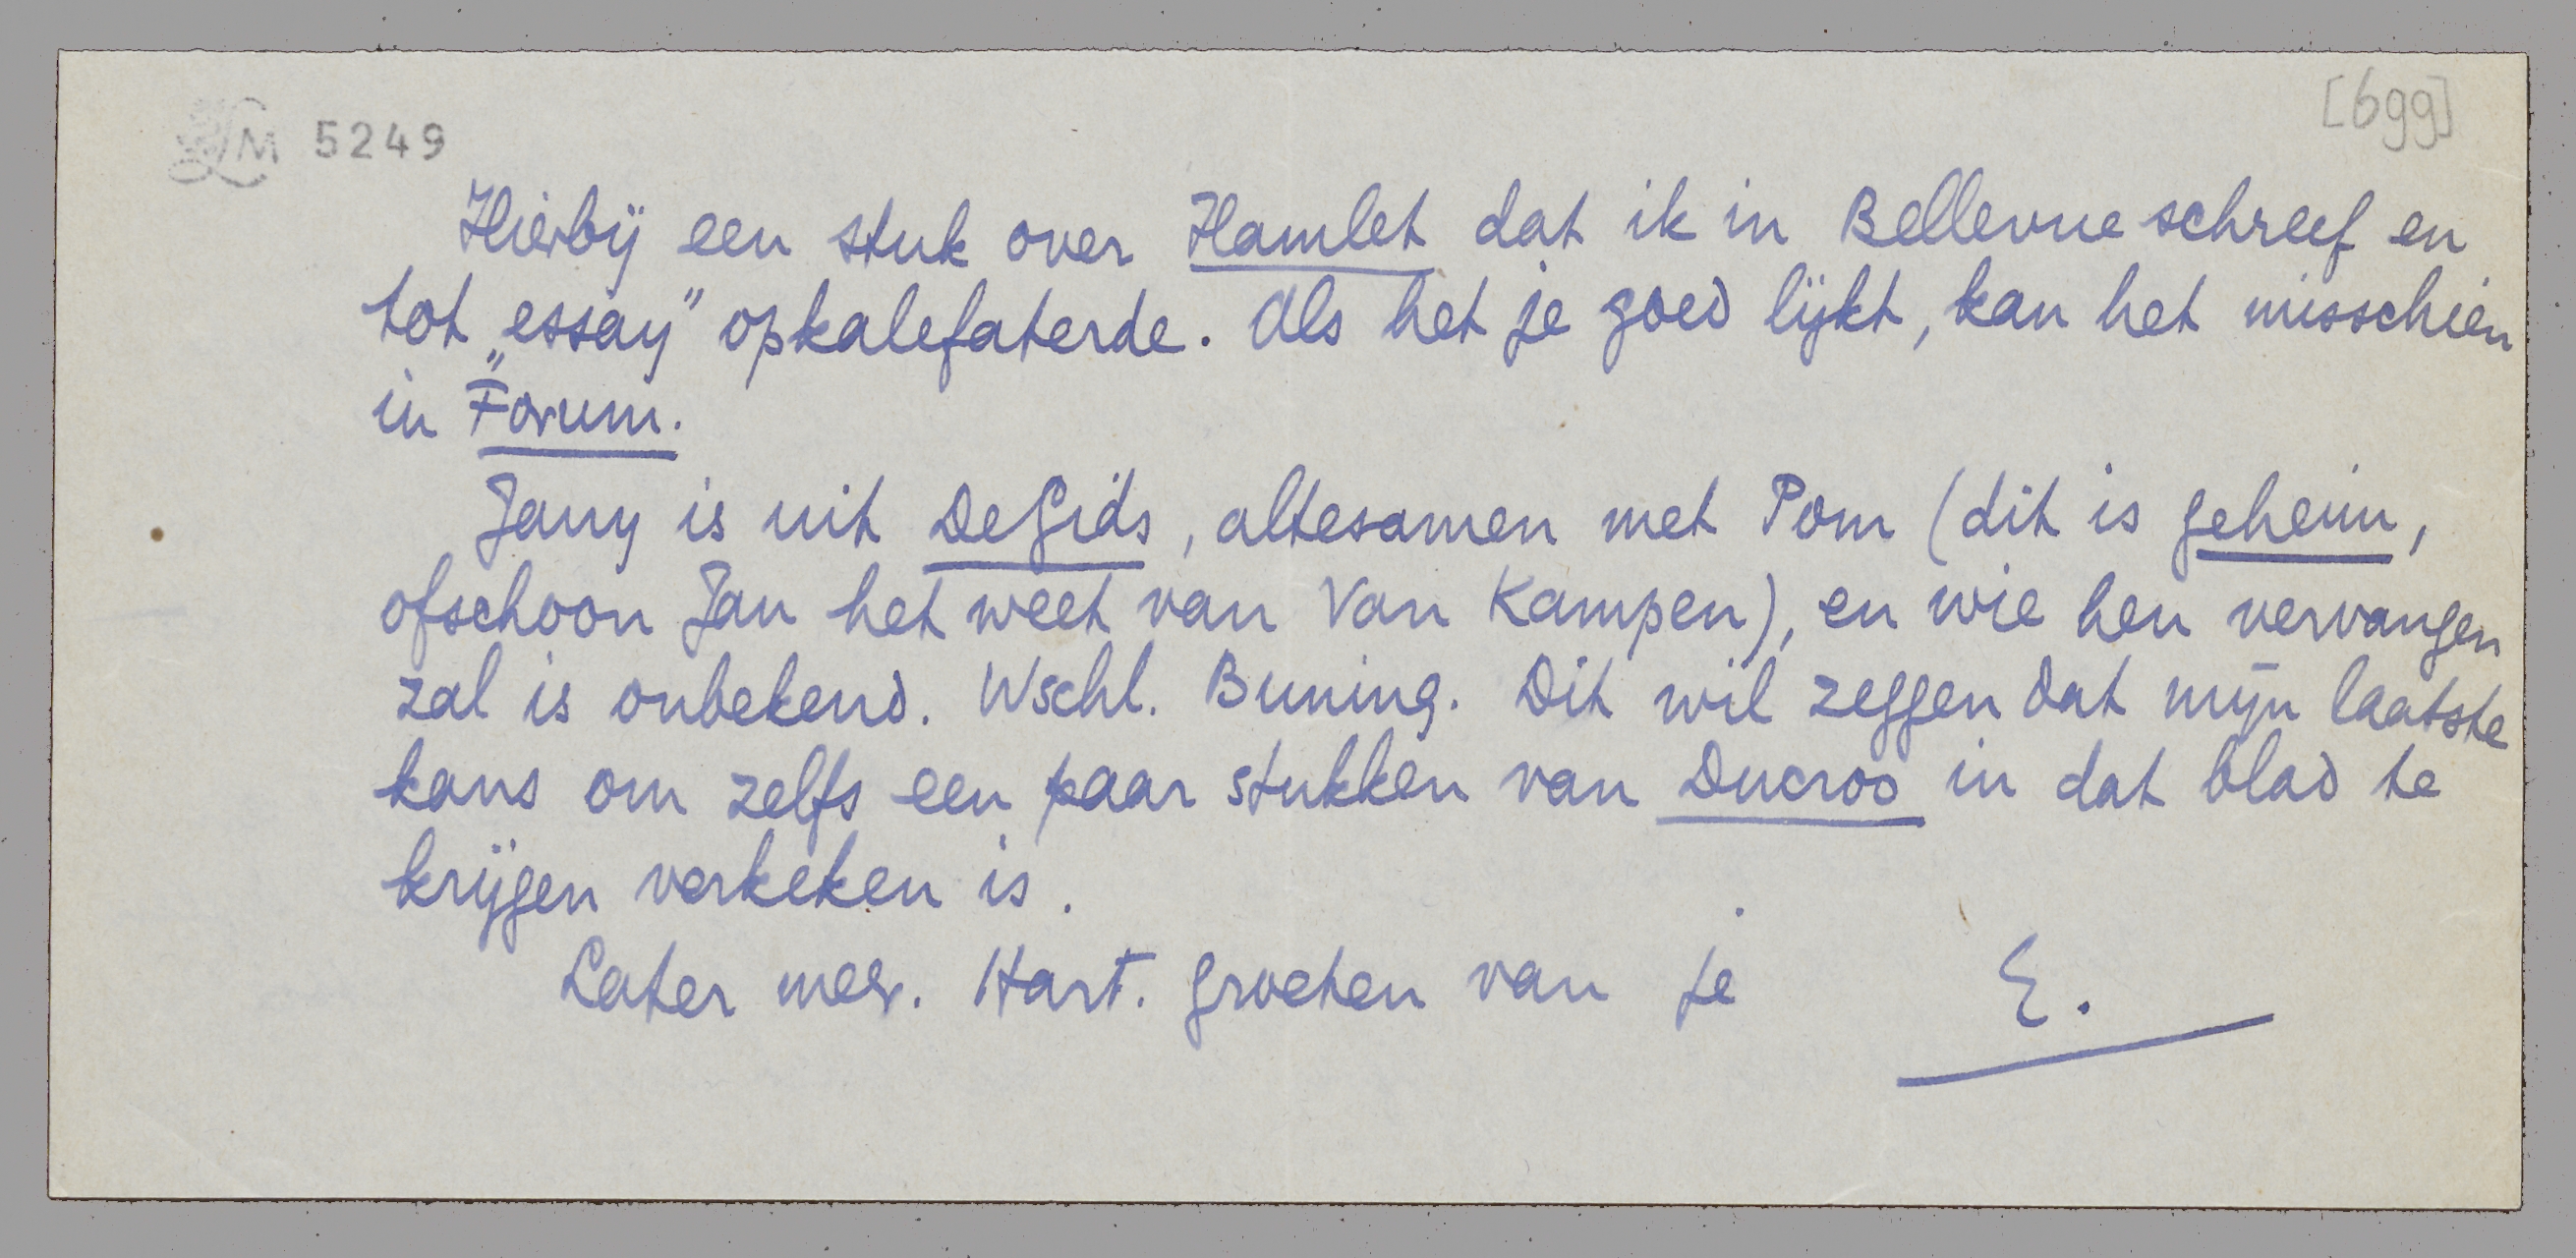 LM 5249
[699]
Hierbij een stuk over Hamlet dat ik in Bellevue schreef en
tot „essay” opkalefaterde. Als het je goed lijkt, kan het misschien
in Forum.
Jany is uit De Gids, altesamen met Pom (dit is geheim,
ofschoon Jan het weet van Van Kampen), en wie hen vervangen
zal is onbekend. Wschl. Buning. Dit wil zeggen dat mijn laatste
kans om zelfs een paar stukken van Ducroo in dat blad te
krijgen verkeken is.
Later meer. Hart. groeten van je E.